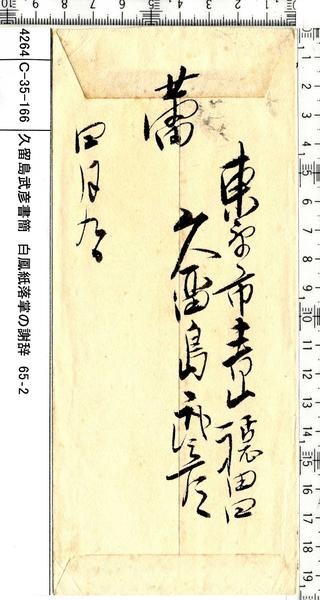 東京市青山穏田四
久留島武彦
蕾
四月九日
4264 C-35-166 久留島武彦書簡 白鳳紙落掌の謝辞 65-2